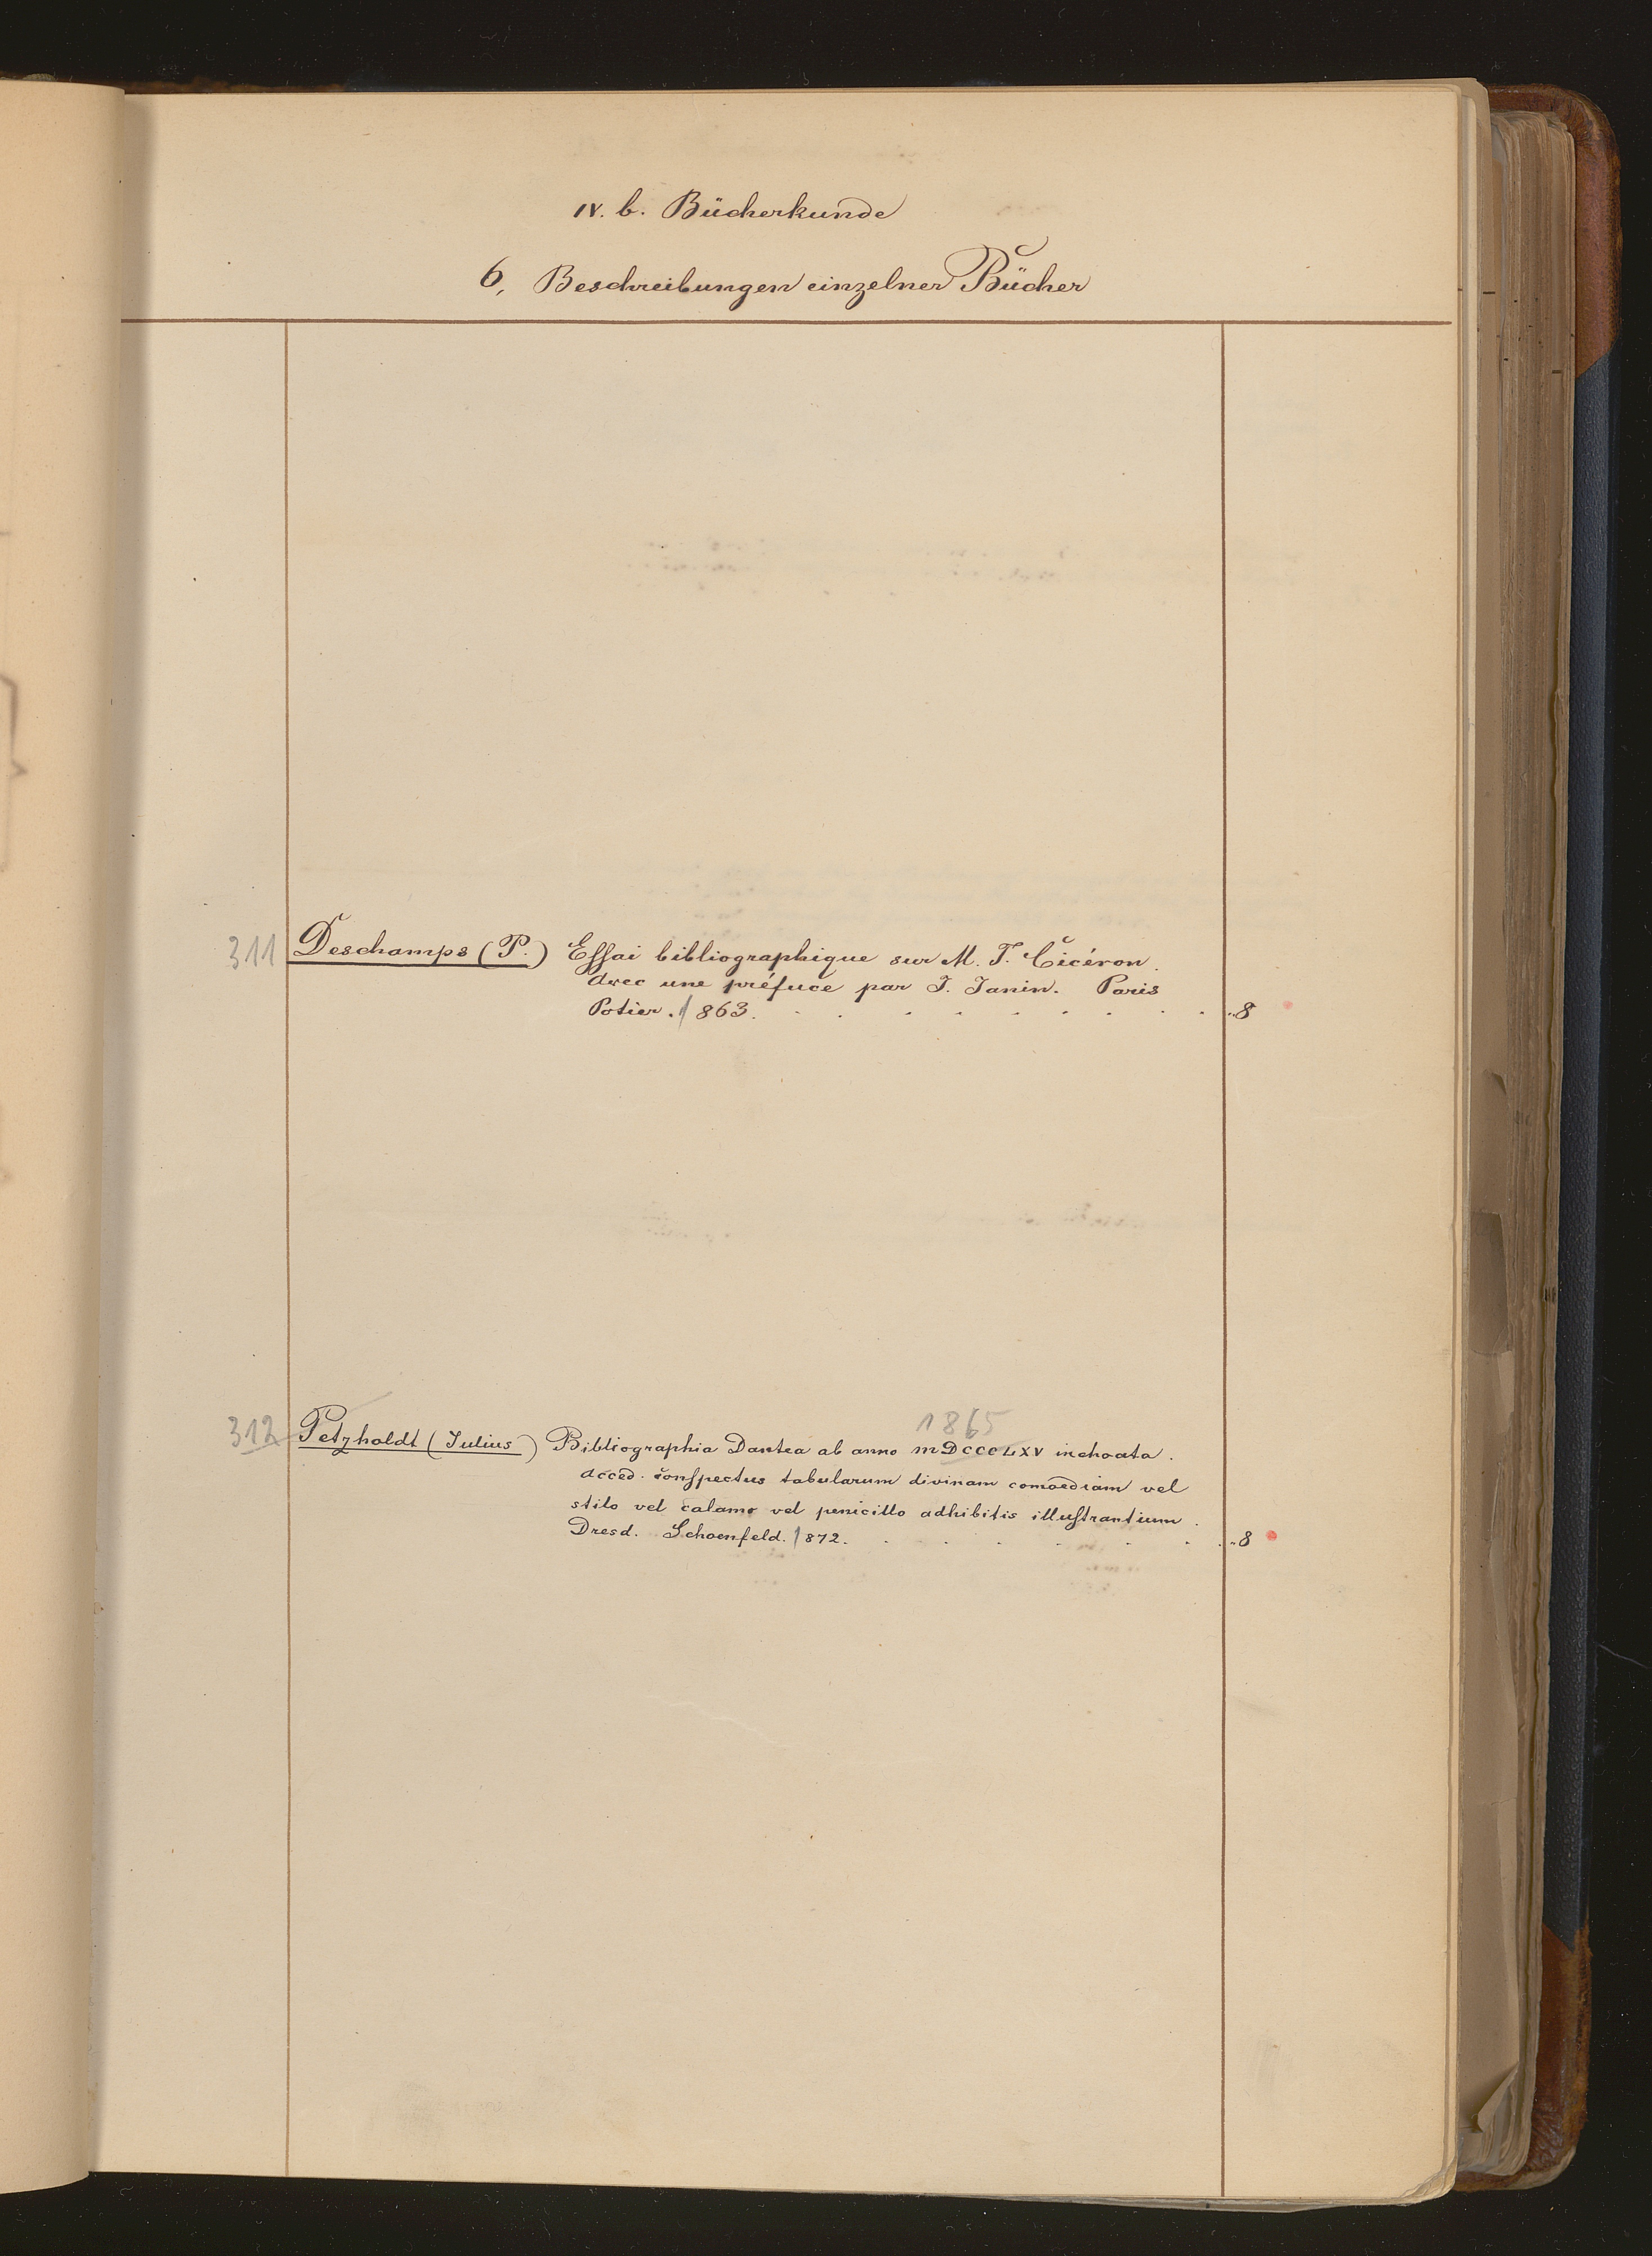 IV. b. Bücherkunde
6, Beschreibungen einzelner Bücher
311 Deschamps (P.) Eſsai bibliographique sur M. T. Cicéron.
Avec une préface par J. Janin. Paris
Potier. 1863. . . . . . . . . . „8
1865
312 Petzholdt (Julius) Bibliographia Dantea ab anno MDCCCLXV inchoata.
Acced. conſpectus tabularum divinam comoediam vel
stilo vel calamo vel penicillo adhibitis illuſtrantium.
Dresd. Schoenfeld. 1872. . . . . . . . „8